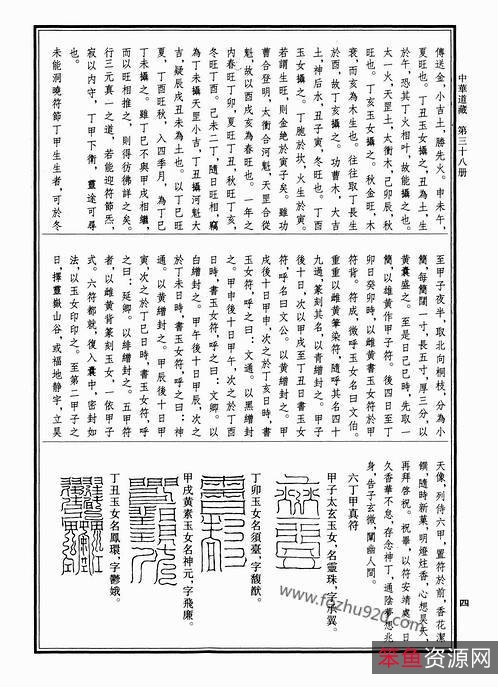 中華道藏 第三十八册
傳送金，小吉土，勝先火。申未午，
夏旺也。丁丑玉女攝之，丑為土，生
於午，恐其丁火相叶，故能攝之也。
太一火，天罡土，太衝木，己卯辰，秋
旺也。丁亥玉女攝之。秋金旺，木
衰，而亥為木生也。往往取丁長生
於酉，故丁亥攝之。功曹木，大吉
土，神后水，丑子寅，冬旺也。丁酉
玉女攝之。丁胞於坎，火生於寅。
若謂生旺，則金絶於寅子矣。雖功
曹合登明，太衝合河魁，天罡合從
魁，故以酉戌亥為春旺也。一年之
内春旺丁卯，夏旺丁丑，秋旺丁亥，
冬旺丁酉。己未二丁，隨日旺相，竊
為丁未攝天罡小吉，丁丑攝河魁大
吉，疑辰戌丑未為土也。以丁巳旺
夏，丁酉旺秋，入四季月，為丁巳
丁未攝之。雖丁巳不與甲戌相繼，
而以旺相推之，則得彷彿詳之矣。
行三元真一之道，若能迎符節炁，
寂以内守，丁甲下衛，靈迹可尋
未能洞曉符節丁甲生生者，可於冬
至甲子夜半，取北向桐枝，分為小
簡，每簡闊一寸，長五寸，厚三分，以
黄囊盛之。至是日己巳時，先取一
簡，以雄黄作甲子符。後四日至丁
卯日癸卯時，以雌黄書玉女符於甲
背。符成，微呼玉女名曰文伯。
重重以雌黄筆染符，隨呼其名四十
九過，篆刻其名，以青繒封之。甲子
後十日，次以甲戌至丁丑日書玉女
符，呼名曰文公。以黄繒封之。甲
戌後十日甲申，次之於丁亥日時，書
玉女符，呼之曰：文通。以黑繒封
之。甲申後十日甲午，次之於丁酉
日時，書玉女符，呼之曰：文卿。以
白繒封之。甲午後十日甲辰，次之
於丁未日時，書玉女符，呼之曰：神
通。以黄繒封之。甲辰後十日甲
寅，次之於丁巳日時，書玉女符，呼
之曰：延卿。以絳繒封之。五甲符
者，以雌黄背篆刻玉女，一依甲子
式。六符都就，復入囊中，密封如
法，以玉女印印之。至第二甲子之
日，擇靈嶽山谷，或福地静宇，立昊
天像，列侍六甲，置符於前，香花潔
饌，隨時新菓，明燈炷香，心想昊天，
再拜啓祝。祝畢，以符安靖處，日
久香華不怠，存念神丁，通陰夢想兆
身，告子玄微，闡幽人間。
六丁甲真符
甲子太玄玉女，名靈珠，字承翼。
丁卯玉女名須臺，字馥猷。
甲戌黄素玉女名神元，字飛廉。
丁丑玉女名鳳環，字鬱娥。
四
www.fozhu920.com
笨鱼资源网